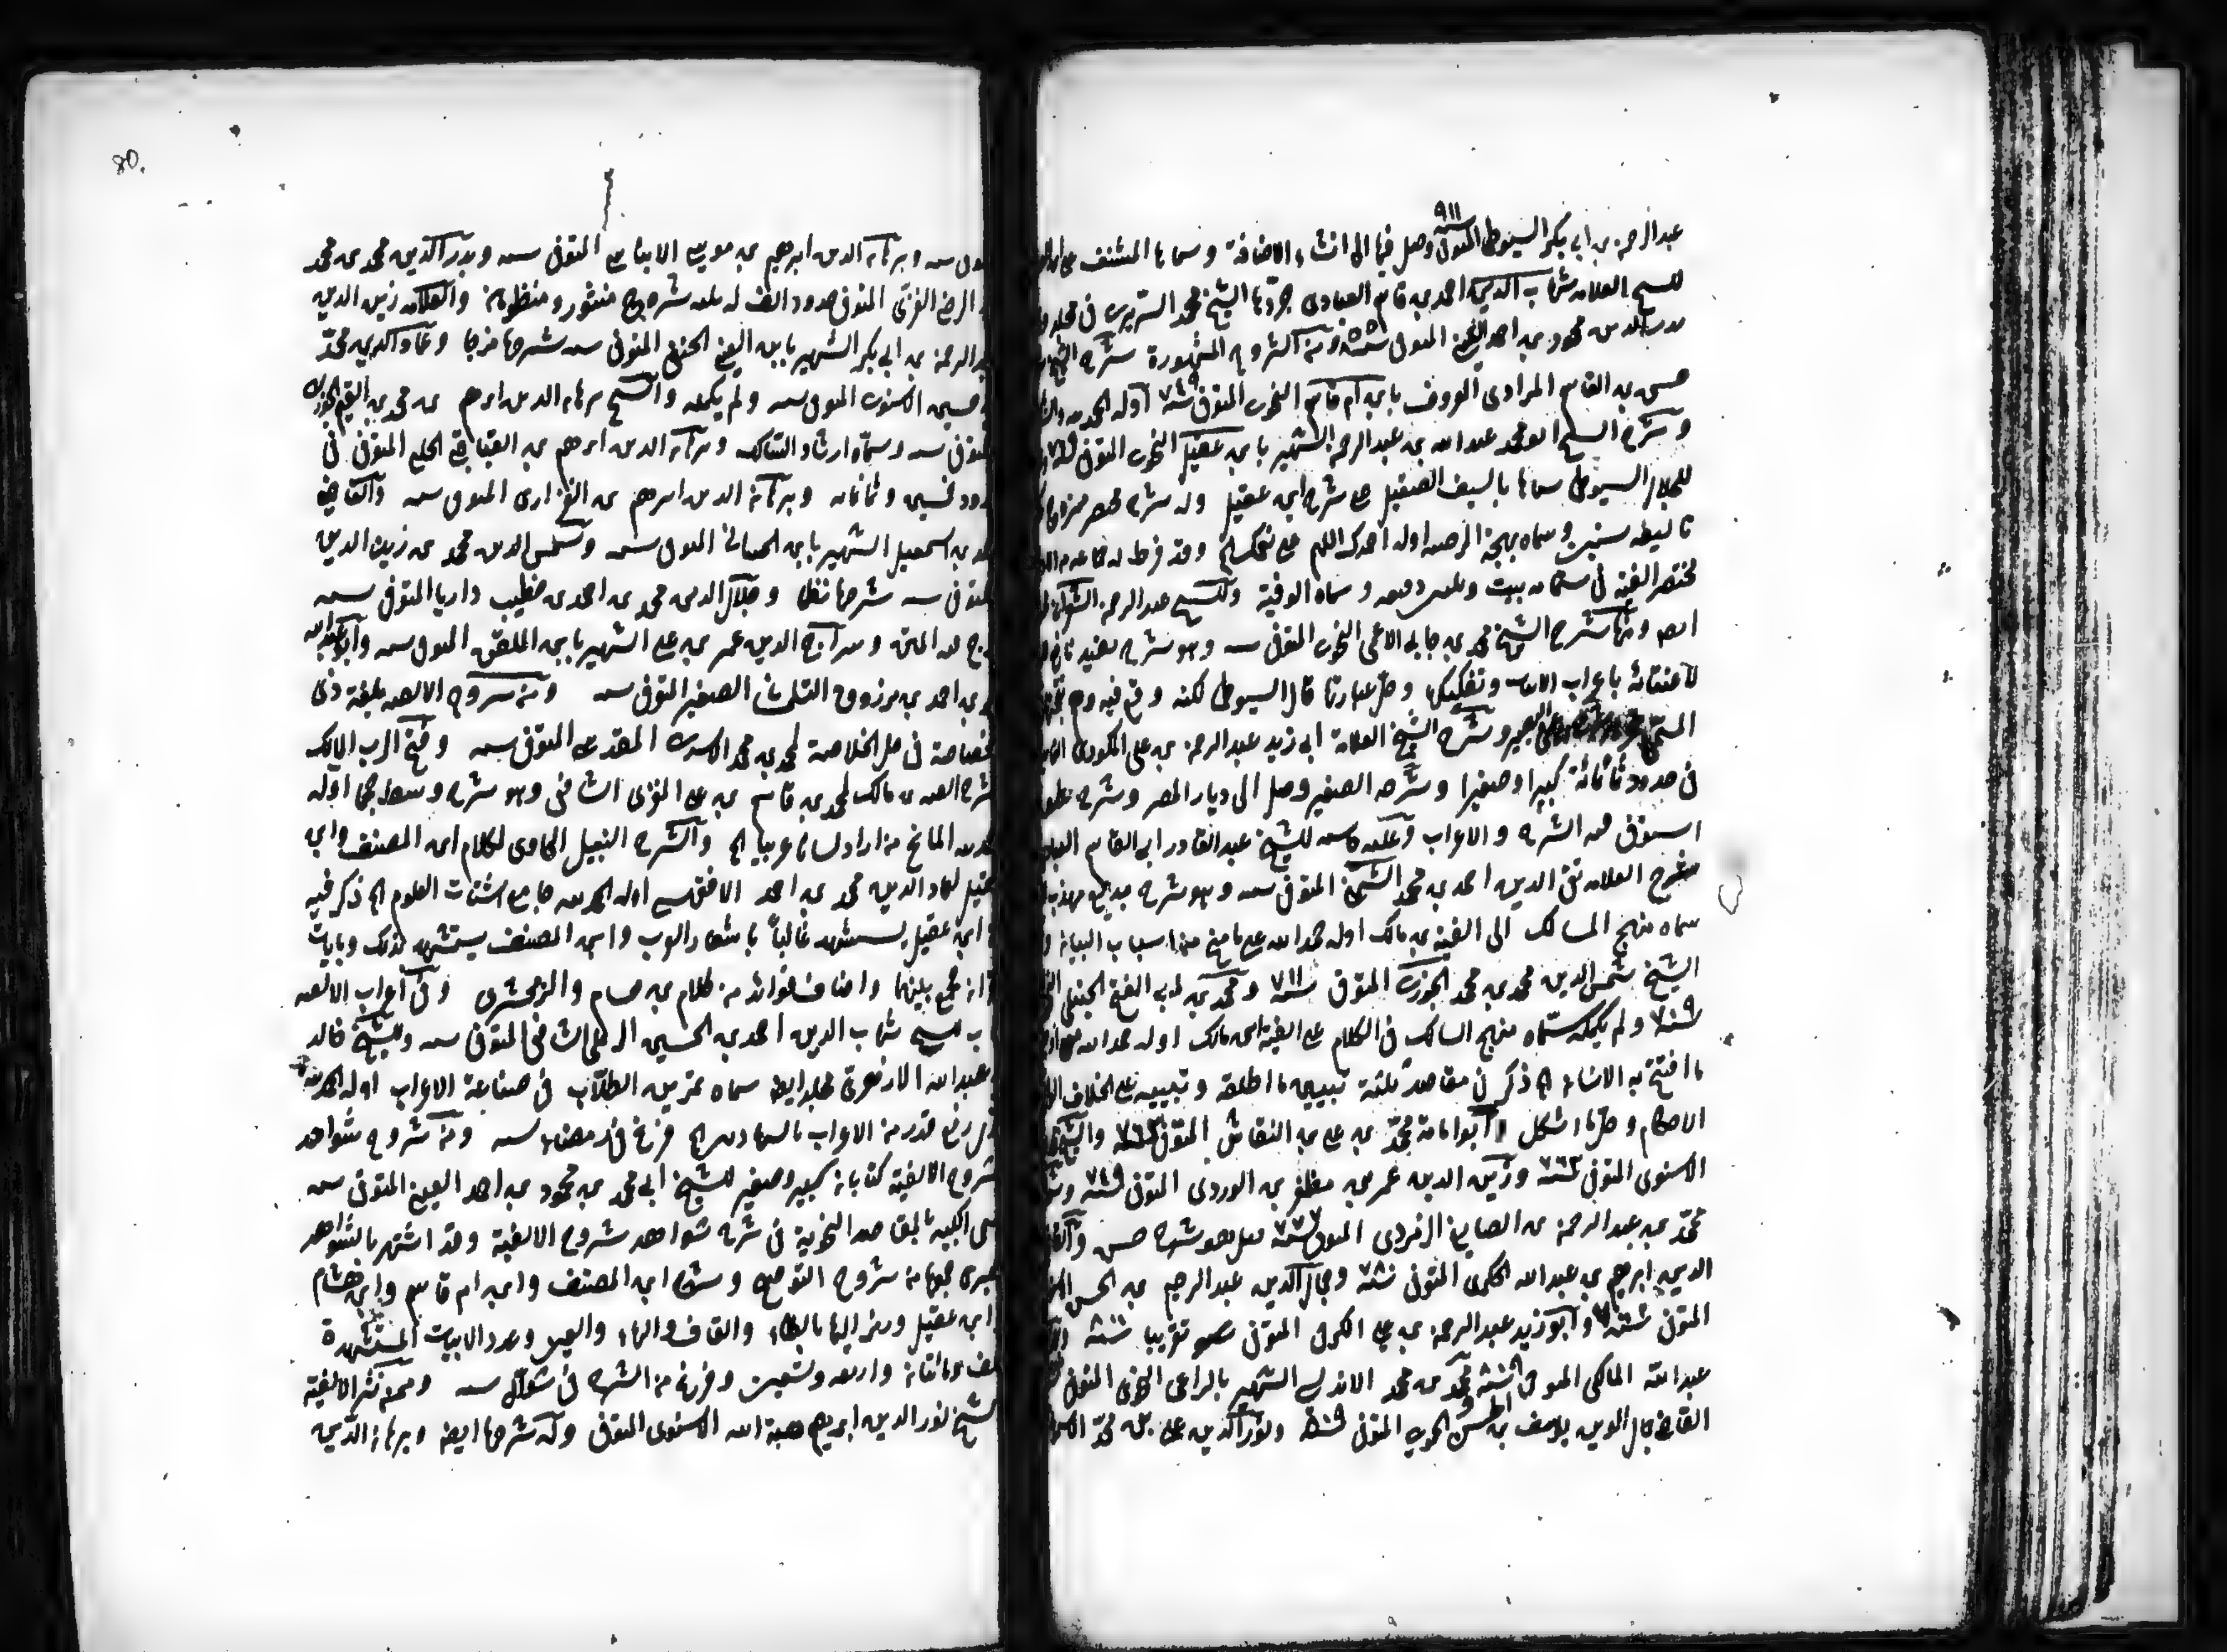 عبد الرحمن بن ابي بكر السيوطي المتوفى ٩١١ وصل فيها الى اثناء الاضافة وسماها المشنف على ابن
للشيخ العلامة شهاب الدين احمد بن قاسم العبادي جردها الشيخ محمد الشوبري في مجلد
بدر الدين محمود بن احمد العيني المتوفى سنة ٨٥٥ ومن الشروح المشهورة شرح الشيخ
حسن بن القاسم المرادي المعروف بابن ام قاسم النحوي المتوفى سنة ٧٤٩ اوله الحمد لله
وشرح الشيخ ابو محمد عبد الله بن عبد الرحمن الشهير بابن عقيل النحوي المتوفى
للجلال السيوطي سماها بالسيف الصقيل على شرح ابن عقيل وله شرح مختصر ممزوج
تاليفه سنتين وسماه بهجة المرضية اوله احمدك اللهم على نعمك الخ وقد قرظ له
مختصر الفية في ستمائة بيت وثلثين دقيقه وسماه الوفية وللشيخ عبد الرحمن
ومنها شرح الشيخ محمد بن جابر الاعمى النحوي المتوفى سنة وهو شرح مفيد نافع
لاعتنائه باعراب الابيات وتفكيكها وحل عباراتها قال السيوطي لكنه وقع فيه وهم
وشرح الشيخ العلامة ابي زيد عبد الرحمن بن علي المكودي
في حدود ثمانمائة كبيرا وصغيرا وشرحه الصغير وصل الى ديار المصر وشرح
استوفى فيه الشرح والاعراب وعليه حاشية للشيخ عبد القادر ابي القاسم
العلامة تقي الدين احمد بن محمد الشمني المتوفى سنة وهو شرح بديع مهذب
سماه منهج المسالك الى الفية بن مالك اوله حمد الله على ما منح من اسباب البيان
الشيخ شمس الدين محمد بن محمد الجزري المتوفى سنة ٧١١ ومحمد بن ابي الفتح الحنبلي
سنة ٧٠٩ ولم يكمله سماه منهج السالك في الكلام على الفية ابن مالك اوله حمد الله
ما افتتح به الانشاء الخ ذكر فيه مقاصد ثلثة تبيين ما اطلقه وتبيينه على الخلاف
الاحكام وحل ما اشكل ابو امامة محمد بن علي بن النقاش المتوفى سنة ٧٦٣ والشيخ
الاسنوي المتوفى ٧٦٣ وزين الدين عمر بن مظفر بن الوردي المتوفى سنة ٧٤٩
محمد بن عبد الرحمن بن الصايغ الزمردي المتوفى سنة ٧٧٧ قيل هو شرح حسن
الدين ابراهيم بن عبد الله الحكري المتوفى سنة ٧٨٠ وجمال الدين عبد الرحيم بن الحسن
المتوفى وابو زيد عبد الرحمن بن علي الكوفي المتوفى تقريبا سنة ٨٠٠
عبد الله المالكي المتوفى محمد بن محمد الاندلسي الشهير بالراعي النحوي المتوفى
القاضي جمال الدين يوسف بن الحسن الحموي المتوفى سنة ٨٠٩ ونور الدين علي بن محمد
وبرهان الدين ابراهيم بن موسى الابناسي المتوفى سنة وبدر الدين محمد بن محمد
الرضي الغزي المتوفى حدود الف له ثلث شروح منثور ومنظومة والعلامة زين الدين
عبد الرحمن بن ابي بكر الشهير بابن العيني الحنفي المتوفى سنة شرحها مزجا وعماد الدين محمد
بن حسين الاسنوي المتوفى سنة ولم يكمله والشيخ برهان الدين ابراهيم بن محمد بن القيم الجوزية
المتوفى سنة وسماه ارشاد السالك وبرهان الدين ابراهيم بن القباقبي الحلبي المتوفى في
حدود خمسين وثمانمائة وبرهان الدين ابراهيم بن الفزاري المتوفى سنة والقاضي
محمد بن اسمعيل الشهير بابن الحمصاني المتوفى سنة وشمس الدين محمد بن زين الدين
المتوفى سنة شرحها نظما وجلال الدين محمد بن احمد بن خطيب داريا المتوفى سنة
مزج فيه المتن وسراج الدين عمر بن علي الشهير بابن الملقن المتوفى سنة وابو عبد الله
محمد بن احمد بن مرزوق التلمساني الصغير المتوفى سنة ومن شروح الالفية بلغة ذي
الخصاصة في حل الخلاصة لمحمد بن محمد الاسدي المقدسي المتوفى سنة وفتح الرب المالك
بشرح الفية بن مالك لمحمد بن قاسم بن علي الغزي الشافعي وهو شرح وسط حجما اوله
الحمد لله المانح من اراد لسانا عربيا الخ والشرح النبيل الحاوي لكلام ابن المصنف وابن
عقيل لعماد الدين محمد بن احمد الاقفهسي اوله الحمد لله جامع اشتات العلوم الخ ذكر فيه
ان ابن عقيل يستشهد غالبا باشعار العرب وابن المصنف يستشهد كذلك وبايات
قرانه فجمع بينهما واضاف فوائد من كلام بن هشام والزمخشري وفي اعراب الالفية
كتاب للشيخ شهاب الدين احمد بن الحسين الرملي الشافعي المتوفى سنة وللشيخ خالد
بن عبد الله الازهري مجلد ايضا سماه تمرين الطلاب في صناعة الاعراب اوله الحمد لله
الذي رفع قدر من الاعراب بالشهادتين الخ فرغ في رمضان سنة ومن شروح شواهد
شروح الالفية كتابان كبير وصغير للشيخ ابي محمد بن محمود بن احمد العيني المتوفى سنة
سمى الكبير بالمقاصد النحوية في شرح شواهد شروح الالفية وقد اشتهر بالشواهد
الكبرى جمعها من شروح التوضيح وشرح ابن المصنف وابن ام قاسم وابن هشام
وابن عقيل ورمز اليها بالظاء والقاف والهاء والعين وعدد الابيات المستشهدة
الف ومائتان واربعة وتسعين وفرغ من الشرح في شوال سنة وممن نثر الالفية
الشيخ نور الدين ابراهيم هبة الله الاسنوي المتوفى وله شرحها ايضا وبرهان الدين
80.